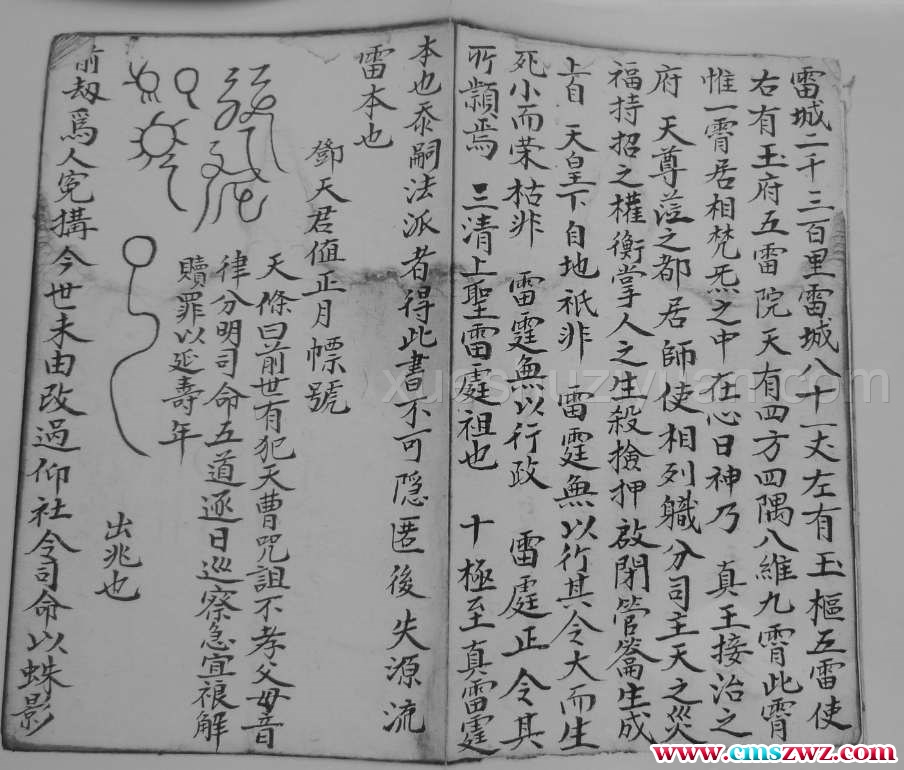 雷城二千三百里雷城八十一丈左有玉樞五雷使
右有玉府五雷院天有四方四隅八維九霄此霄
惟一霄居相梵炁之中在心曰神乃 真王接治之
府 天尊蒞之都居師使相列職分司主天之災
福持招之權衡掌人之生殺撿押啟閉管籥生成
上自 天皇下自地祇非 雷霆無以行其令大而生
死小而荣枯非 雷霆無以行政 雷霆正令其
所纇焉 三清上聖雷霆祖也 十極至真雷霆
本也忝嗣法派者得此書不可隠匿後失源流
雷本也
鄧天君值正月幖號
天條曰前世有犯天曹咒詛不孝父母音
律分明司命五道逐日巡察急宜禳解
贖罪以延壽年
出兆也
前刼爲人冤搆今世未由改過仰社令司命以蛛影
xueshuziyuan.com
www.cmszwz.com